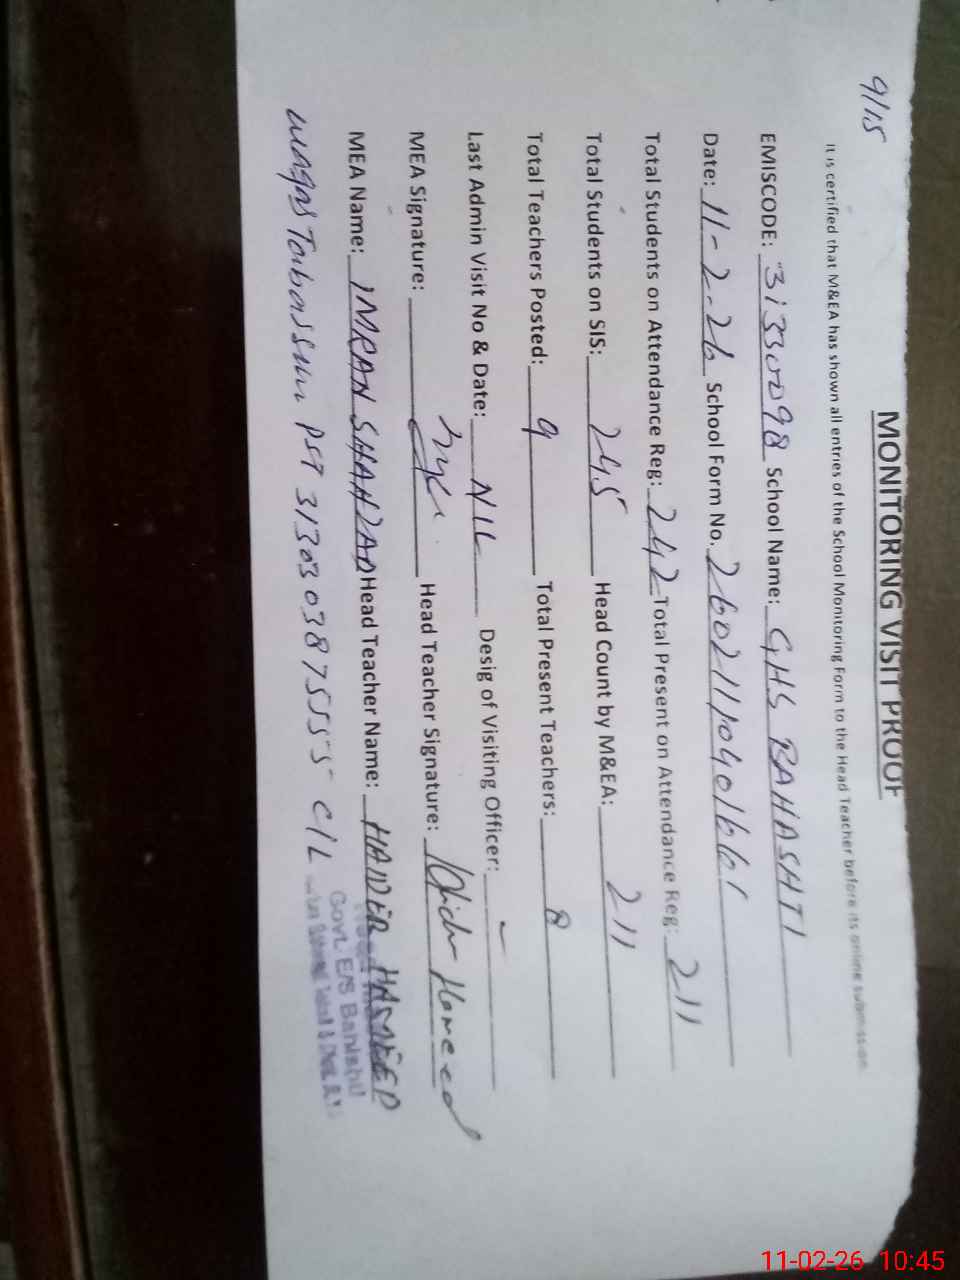 9/15
MONITORING VISIT PROOF
It is certified that M&EA has shown all entries of the School Monitoring Form to the Head Teacher before its online submission
EMISCODE: 31330098 School Name: GHS BAHASHTI
Date: 11-2-26 School Form No. 26021110401661
Total Students on Attendance Reg: 242 Total Present on Attendance Reg: 211
Total Students on SIS: 245 Head Count by M&EA: 211
Total Teachers Posted: 9 Total Present Teachers: 8
Last Admin Visit No & Date: NIL Desig of Visiting Officer: -
MEA Signature: Head Teacher Signature: Haider Hameed
MEA Name: IMRAN SHAHZAD Head Teacher Name: HAIDER HAMEED
waqas Tabassum PST 3130303875555 C/L
Govt. E/S Bahishti
11-02-26 10:45